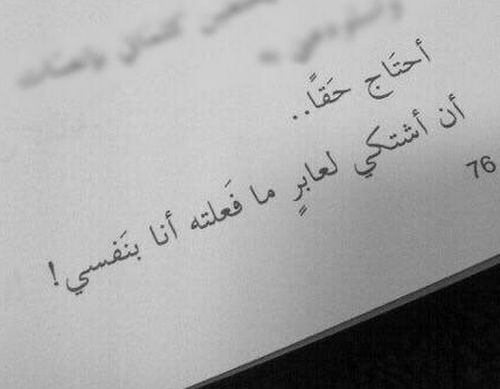 أحتَاج حَقاً..
أن أشتكي لعابرٍ ما فَعلته أنا بنَفسي!
76